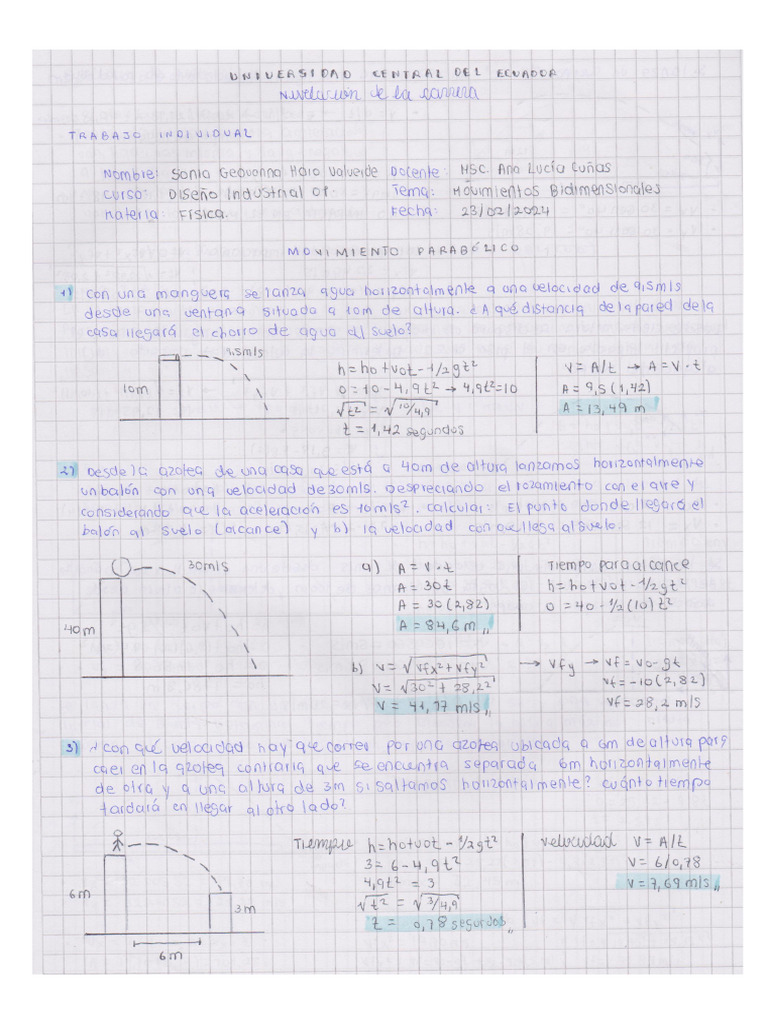 UNIVERSIDAD CENTRAL DEL ECUADOR
Nivelación de la carrera
TRABAJO INDIVIDUAL
Nombre: Sonia Geovanna Haro Valverde Docente: MSC. Ana Lucía Cuñas
Curso: Diseño Industrial 01. Tema: Movimientos Bidimensionales
Materia: Física. Fecha: 23/02/2024
MOVIMIENTO PARABÓLICO
1) Con una manguera se lanza agua horizontalmente a una velocidad de 9,5m/s
desde una ventana situada a 10m de altura. ¿A qué distancia de la pared de la
casa llegará el chorro de agua al suelo?
9.5m/s
10m
h = ho + vot - 1/2gt²
0 = 10 - 4,9t² → 4,9t² = 10
√t² = √10/4,9
t = 1,42 segundos
V = A/t → A = V · t
A = 9,5 (1,42)
A = 13,49 m
2) Desde la azotea de una casa que está a 40m de altura lanzamos horizontalmente
un balón con una velocidad de 30m/s. Despreciando el rozamiento con el aire y
considerando que la aceleración es 10m/s². calcular: El punto donde llegará el
balón al suelo (alcance) y b) la velocidad con que llega al suelo.
30m/s
40m
a) A = V · t
A = 30t
A = 30 (2,82)
A = 84,6 m
Tiempo para alcance
h = ho + vot - 1/2gt²
0 = 40 - 1/2 (10) t²
b) V = √Vfx² + Vfy² → Vfy → Vf = Vo - gt
V = √30² + 28,2²
V = 41,17 m/s
Vf = -10 (2,82)
Vf = 28,2 m/s
3) ¿Con qué velocidad hay que correr por una azotea ubicada a 6m de altura para
caer en la azotea contraria que se encuentra separada 6m horizontalmente
de otra y a una altura de 3m si saltamos horizontalmente? cuánto tiempo
tardará en llegar al otro lado?
6m
3m
6m
Tiempo h = ho + vot - 1/2gt²
3 = 6 - 4,9t²
4,9t² = 3
√t² = √3/4,9
t = 0,78 segundos
Velocidad V = A/t
V = 6/0,78
V = 7,69 m/s